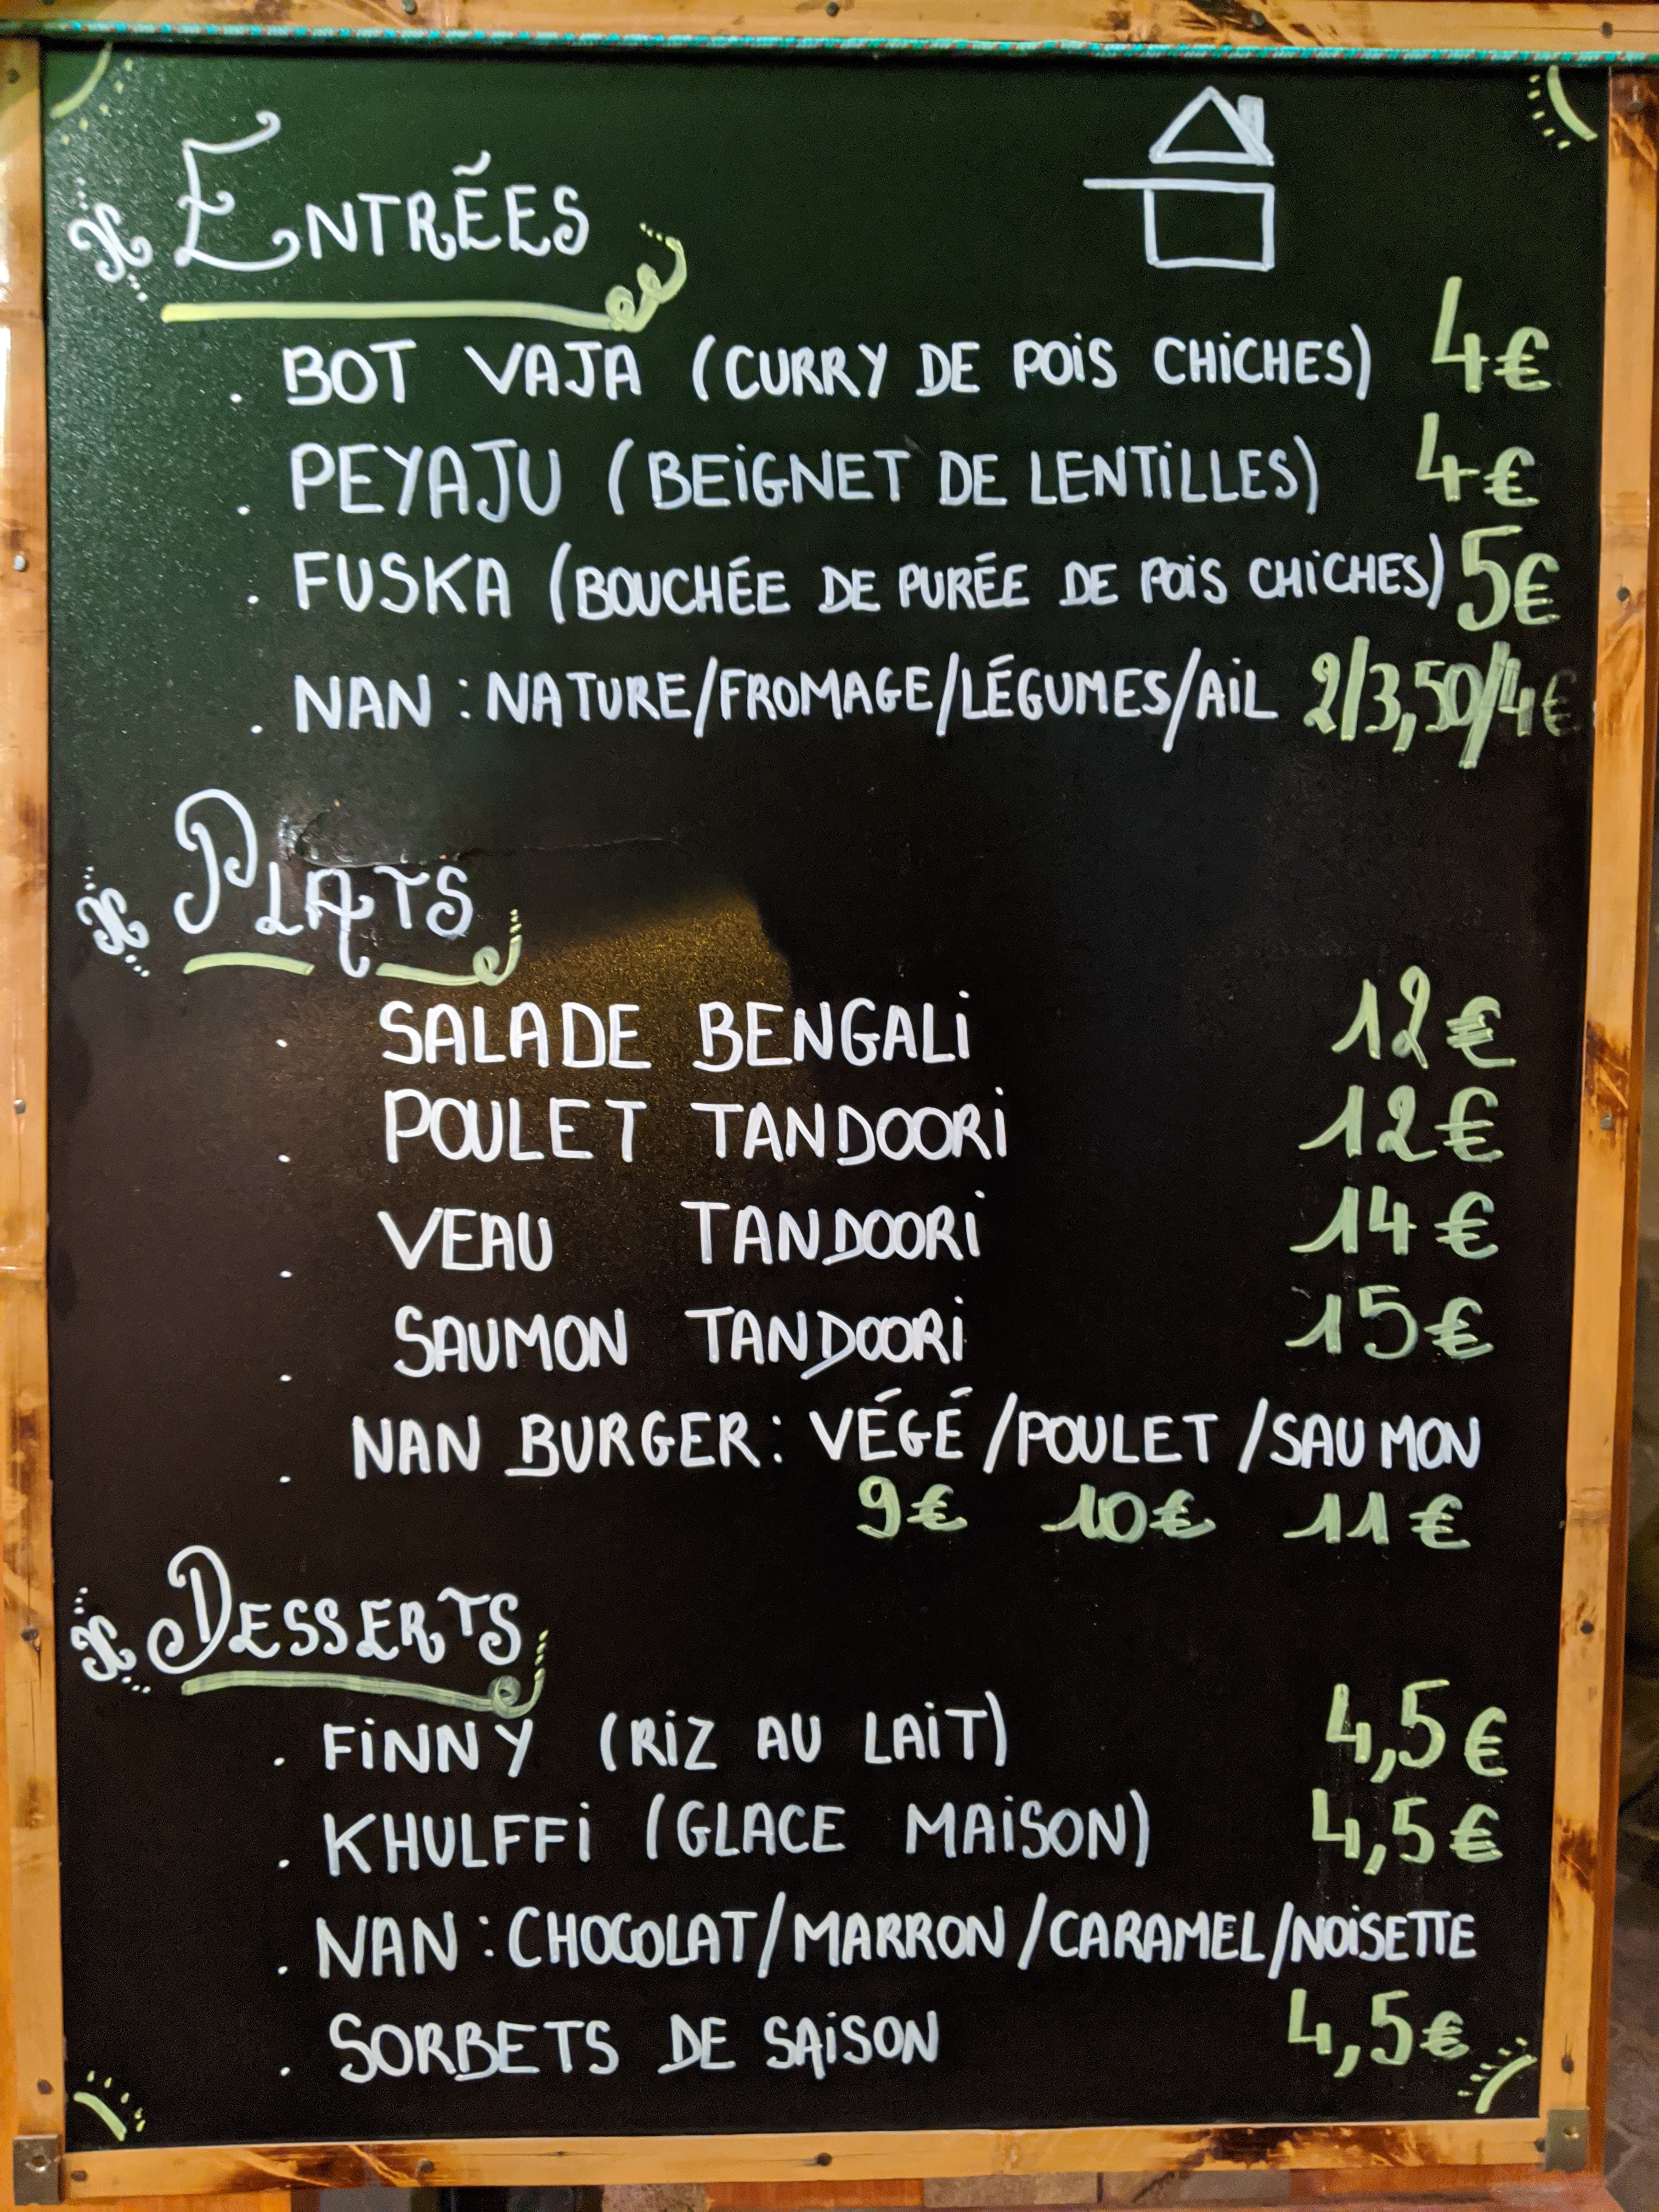 ENTRÉES
. BOT VAJA (CURRY DE POIS CHICHES) 4€
. PEYAJU (BEIGNET DE LENTILLES) 4€
. FUSKA (BOUCHÉE DE PURÉE DE POIS CHICHES) 5€
. NAN : NATURE/FROMAGE/LÉGUMES/AIL 2/3,50/4€
PLATS
. SALADE BENGALI 12€
. POULET TANDOORI 12€
. VEAU TANDOORI 14€
. SAUMON TANDOORI 15€
. NAN BURGER : VÉGÉ /POULET /SAUMON
9€ 10€ 11€
DESSERTS
. FINNY (RIZ AU LAIT) 4,5€
. KHULFFI (GLACE MAISON) 4,5€
. NAN : CHOCOLAT/MARRON/CARAMEL/NOISETTE
. SORBETS DE SAISON 4,5€